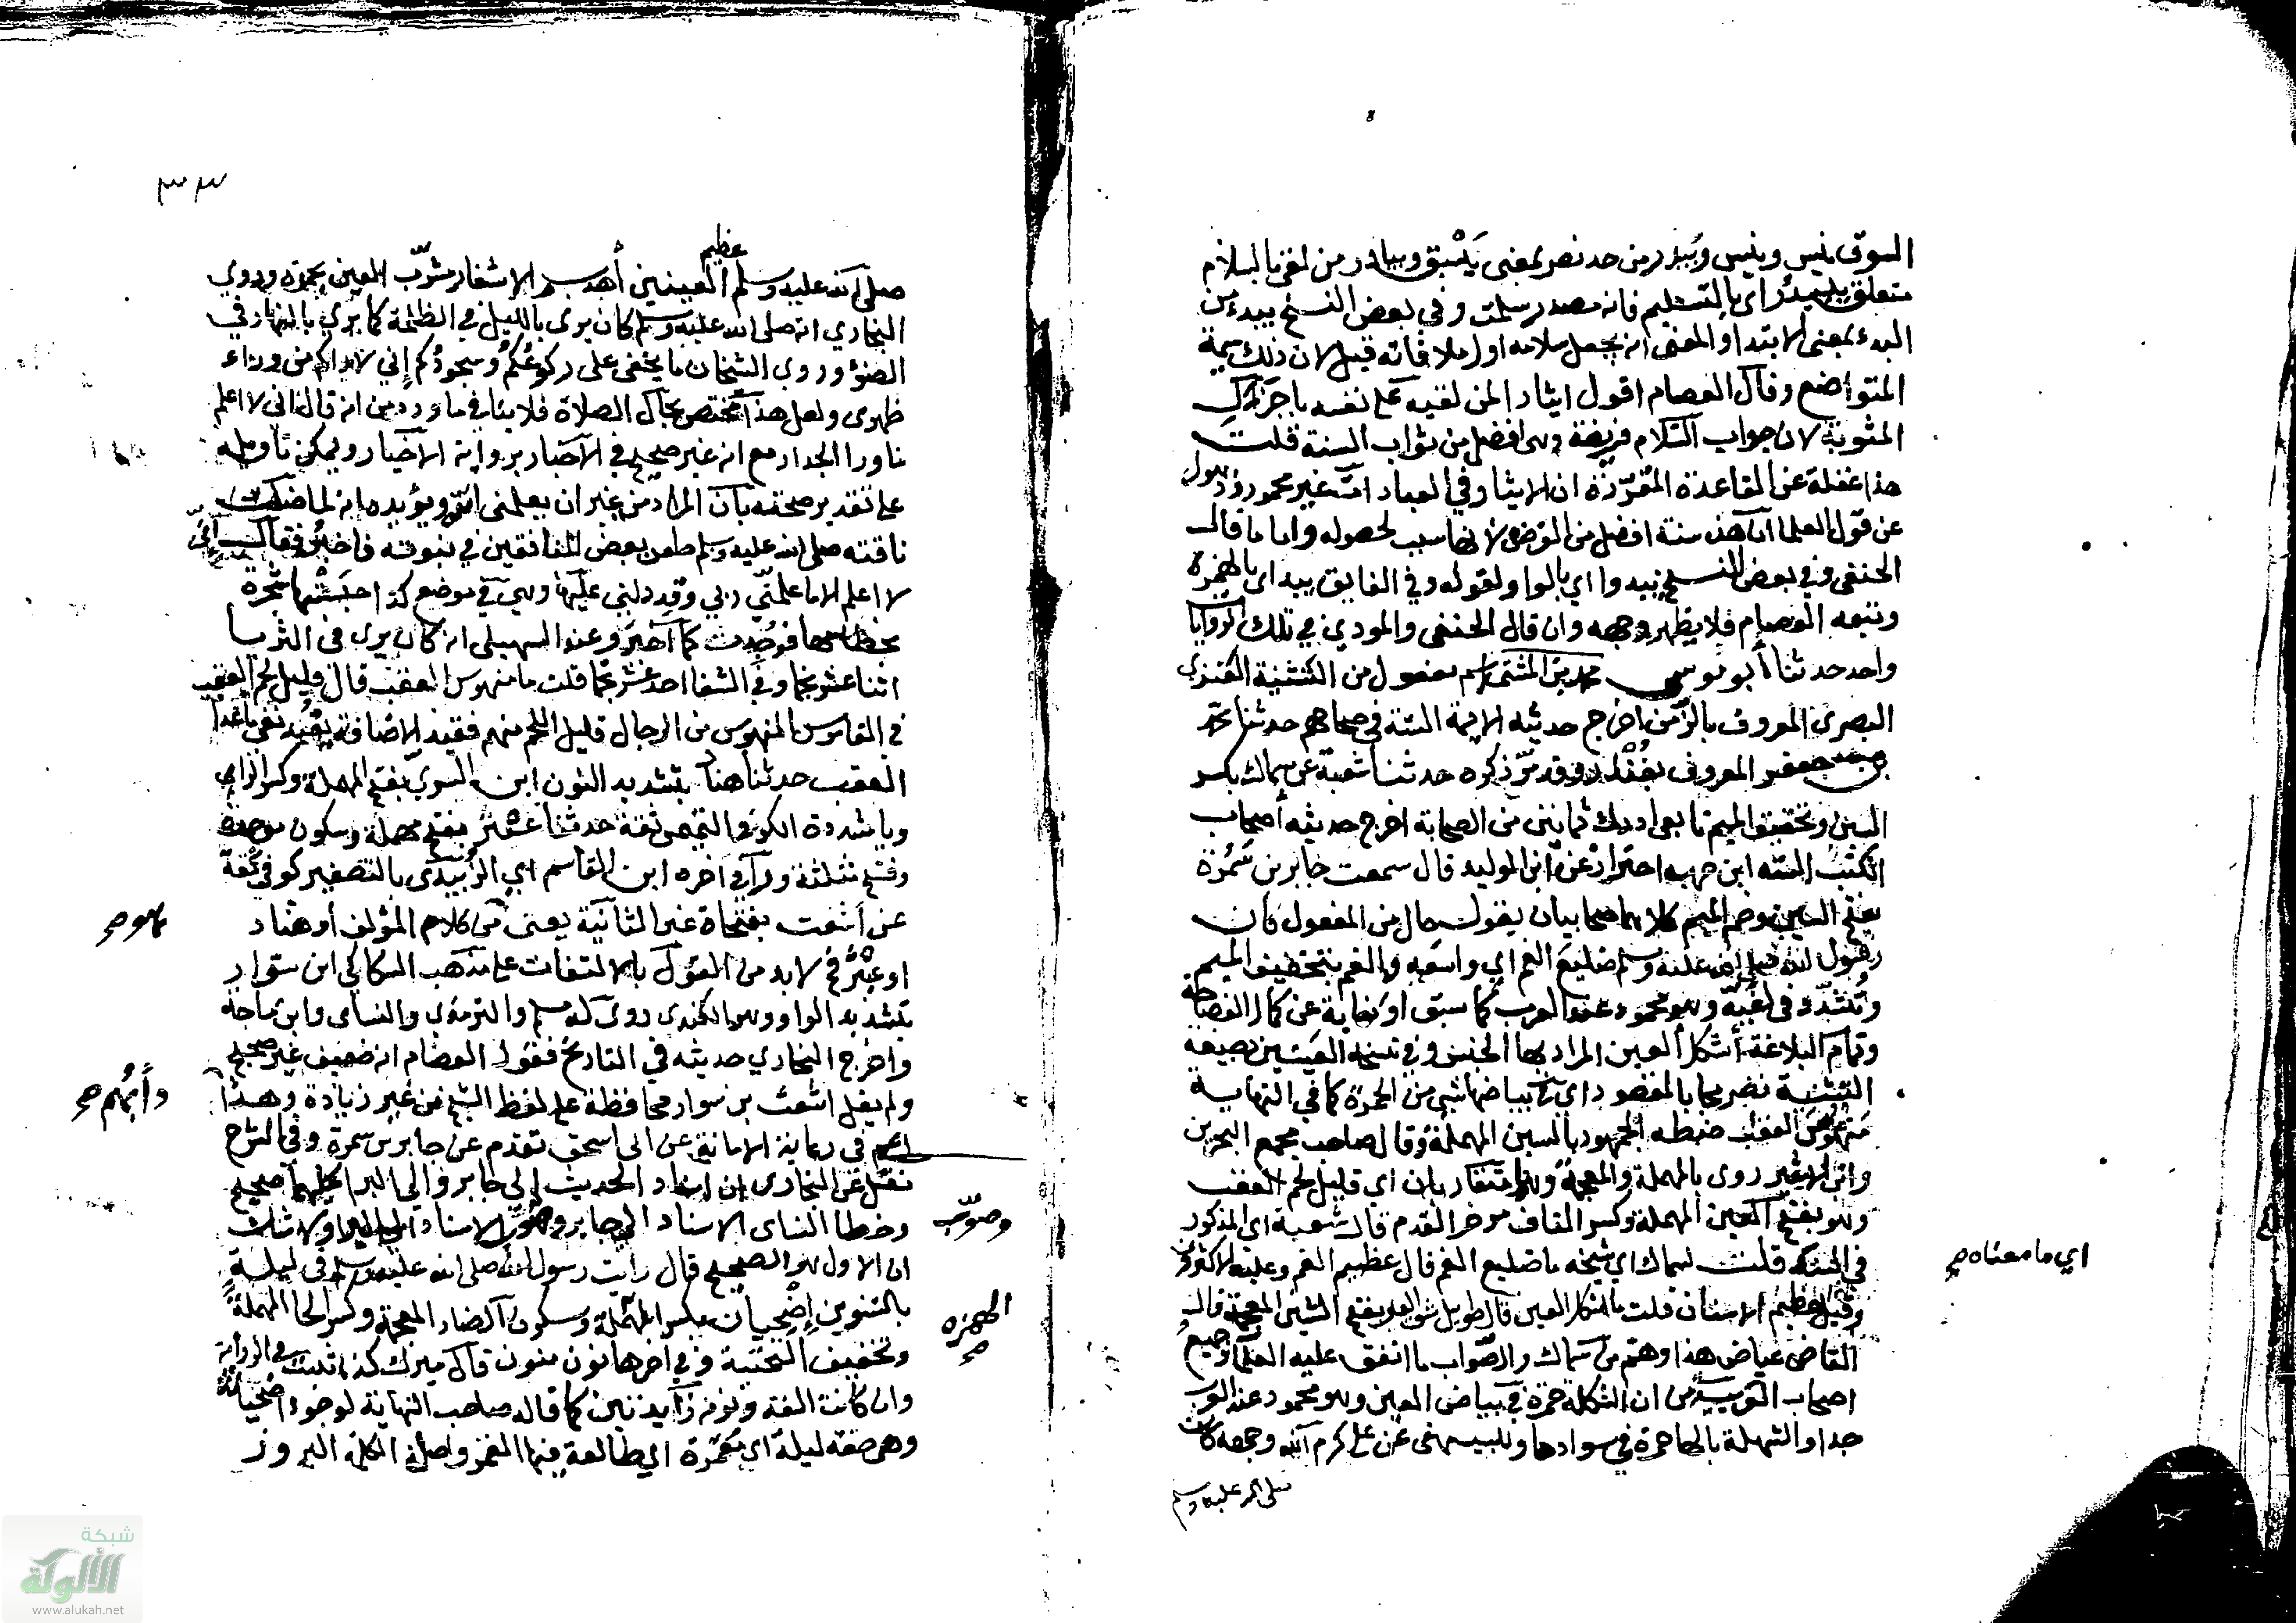 السوق ينس وينس ويبدر من حد نصر بمعنى يسبق ويبادر من لقي بالسلام
متعلق بيبدر اى بالتسليم فانه مصدر سلمت وفي بعض النسخ يبدء من
البدء بمعنى الابتدا والمعنى انه يجعل سلامه اول ملاقاته قيل لان ذلك سيمة
المتواضع وقال العصام اقول ايثارا لمن لقيه على نفسه باجزل
المثوبة لان جواب السلام فريضة وهى افضل من ثواب السنة قلت
هذا غفلة عن القاعدة المقررة ان الايثار في العبادات غير محمود وذهول
عن قول العلما ان هذه سنة افضل من الفرض لانها سبب لحصوله واما ما قال
الحنفى وفي بعض النسخ يبدوا اي بالواو لقوله وفي الفايق يبدا اى بالهمزة
وتبعه العصام فلا يظهر وجهه وان قال الحنفى والمودي في تلك الروايات
واحد حدثنا أبو موسى محمد بن المثنى اسم مفعول من التثنية العنزي
البصرى المعروف بالزمن اخرج حديثه الايمة الستة في صحاحهم حدثنا محمد
بن جعفر المعروف بغندر وقد مر ذكره حدثنا شعبة عن سماك بكسر
السين وتخفيف الميم تابعي ادرك ثمانين من الصحابة اخرج حديثه أصحاب
الكتب الستة ابن حرب احترازا عن ابن الوليد قال سمعت جابر بن سمرة
بفتح السين وضم الميم كلاهما صحابيان يقول حال من المفعول كان
رسول الله صلى الله عليه وسلم ضليع الفم اي واسعه والفم بتخفيف الميم
وتشدد في لغية وهو محمود عند العرب كما سبق او كناية عن كمال الفصاحة
وتمام البلاغة أشكل العين المراد بها الجنس وفي نسخة العينين بصيغة
التثنية تصريحا بالمقصود اي في بياضها شي من الحمرة كما في النهاية
منهوس العقب ضبطه الجمهور بالسين المهملة وقال صاحب مجمع البحرين
وابن الاثير روى بالمهملة والمعجمة وهما متقاربان اي قليل لحم العقب
وهو بفتح العين المهملة وكسر القاف موخر القدم قال شعبة اى المذكور
في السند قلت لسماك اي شيخه ما ضليع الفم قال عظيم الفم وعليه الاكثرون
اي ما معناه صح
وقيل عظيم الاسنان قلت ما أشكل العين قال طويل شق العين بفتح الشين المعجمة قال
القاضى عياض هذا وهم من سماك والصواب ما اتفق عليه العلما وجميع
اصحاب الغريب من ان الشكلة حمرة في بياض العين وهو محمود عند العرب
جدا والشهلة بالها حمرة في سوادها وللبيهقى عن علي كرم الله وجهه كان
صلى الله عليه وسلم
٣٣
صلى الله عليه وسلم عظيم العينين أهدب الاشفار مشرب العين بحمرة وروي
البخاري انه صلى الله عليه وسلم كان يرى بالليل في الظلمة كما يرى بالنهار في
الضوء وروى الشيخان ما يخفى على ركوعكم وسجودكم إني لاراكم من وراء
ظهرى ولعل هذا مختص بحال الصلاة فلا ينافي ما ورد من انه قال اني لا اعلم
ما ورا الجدار مع انه غير صحيح في الأخبار برواية الاخيار ويمكن تاويله
على تقدير صحته بأن المراد من غير ان يعلمنى الله ويؤيده ما انه لما ضلت
ناقته صلى الله عليه وسلم طعن بعض المنافقين في نبوته فاخبر فقال إني
لا اعلم الا ما علمني ربي وقد دلني عليها وهي في موضع كذا حبستها شجرة
بخطامها فوجدت كما أخبر وعند السهيلى انه كان يرى في الثريا
اثنا عشر نجما وفي الشفا احد عشر نجما قلت ما منهوس العقب قال قليل لحم العقب
في القاموس المنهوس من الرجال قليل اللحم منهم فقيد الاضافة يفيد نفى ما عدا
العقب حدثنا هناد بتشديد النون ابن السري بفتح المهملة وكسر الراء
ويا مشددة الكوفي التميمى ثقة حدثنا عبثر بفتح مهملة وسكون موحدة
وفتح مثلثة ورا في اخره ابن القاسم اي الزبيدى بالتصغير كوفي ثقة
عن أشعث بفتحات غير الثانية يعنى من كلام المؤلف أو هناد
ما هو صح
او عبثر فح لا بد من القول بالالتفات على مذهب السكاكي ابن سوار
بتشديد الواو وهو الكندى روى له مسلم والترمذي والنساى وابن ماجة
واخرج البخاري حديثه في التاريخ فقول العصام انه ضعيف غير صحيح
ولم يقل اشعث بن سوار محافظة على لفظ الشيخ من غير زيادة وهذا
في رعاية الامانة عن ابى اسحق تقدم عن جابر بن سمرة وفي الشرح
نقل عن البخارى ان اسناد الحديث إلى جابر والي البراء كليهما صحيح
وخطا النساى الاسناد الى جابر وصوب الاسناد الى البراء ولا شك
وصوّب
ان الاول هو الصحيح قال رأيت رسول الله صلى الله عليه وسلم في ليلة
بالتنوين إضحيان بكسر الهمزة وسكون الضاد المعجمة وكسر الحا المهملة
الهمزه صح
وتخفيف التحتية وفي اخرها نون منون قال ميرك كذا ثبت في الرواية
وان كانت الفه ونونه زايدتين كما قاله صاحب النهاية لوجود اضحيانة
وهى صفة ليلة اي مقمرة اي طالعة فيها القمر واصل الكلمة البروز